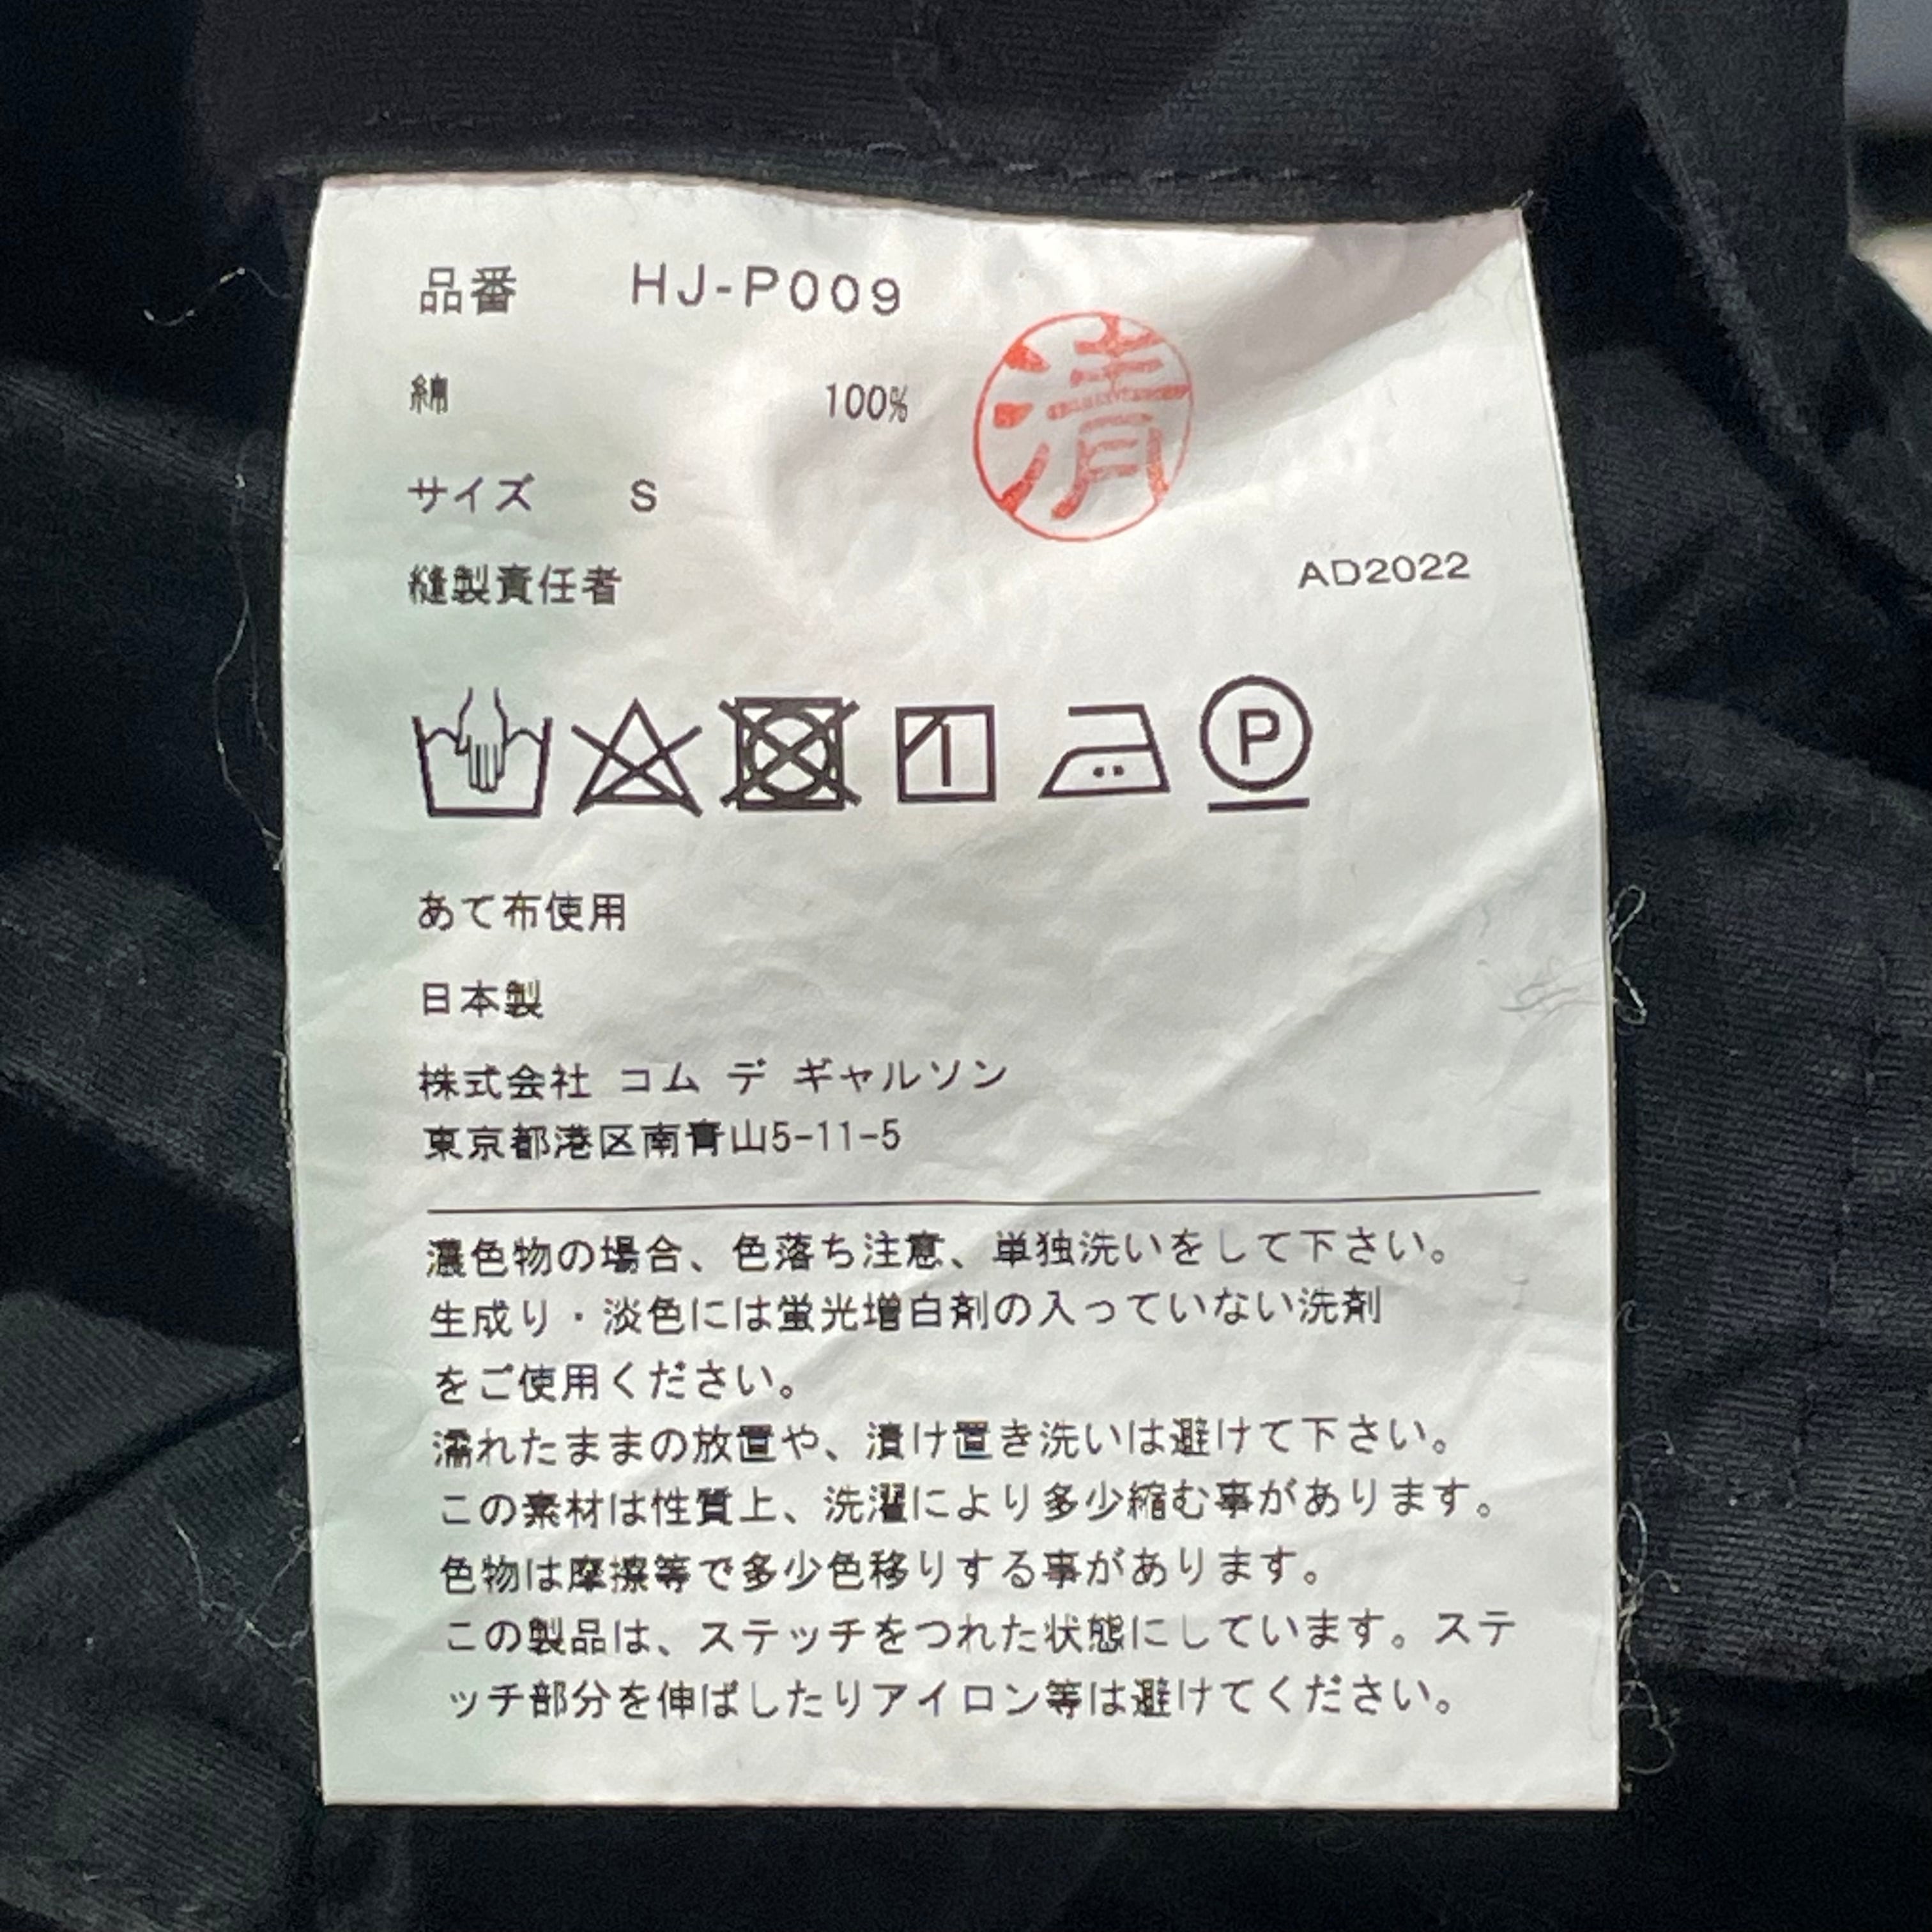 品番 HJ-P009
綿 100%
清
サイズ S
縫製責任者 AD2022
P
あて布使用
日本製
株式会社 コム デ ギャルソン
東京都港区南青山5-11-5
濃色物の場合、色落ち注意、単独洗いをして下さい。
生成り・淡色には蛍光増白剤の入っていない洗剤
をご使用ください。
濡れたままの放置や、漬け置き洗いは避けて下さい。
この素材は性質上、洗濯により多少縮む事があります。
色物は摩擦等で多少色移りする事があります。
この製品は、ステッチをつれた状態にしています。ステ
ッチ部分を伸ばしたりアイロン等は避けてください。